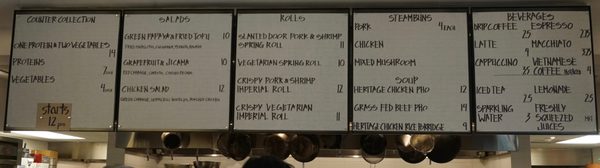 COUNTER COLLECTION
ONE PROTEIN & TWO VEGETABLES
14
PROTEINS
VEGETABLES
starts
12 pm
SALADS
GREEN PAPAYA & FRIED TOFU 10
GRAPEFRUIT & JICAMA 10
RED CABBAGE
CHICKEN SALAD 12
ROLLS
SLANTED DOOR PORK & SHRIMP
SPRING ROLL 11
VEGETARIAN SPRING ROLL 10
CRISPY PORK & SHRIMP
IMPERIAL ROLL 12
CRISPY VEGETARIAN
IMPERIAL ROLL 11
STEAM BUNS
PORK 4 EACH
CHICKEN
MIXED MUSHROOM
SOUP
HERITAGE CHICKEN PHO 12
GRASS FED BEEF PHO 14
HERITAGE CHICKEN RICE PORRIDGE 9
BEVERAGES
DRIP COFFEE ESPRESSO
LATTE MACCHIATO
CAPPUCCINO VIETNAMESE
COFFEE 4
ICED TEA LEMONADE
SPARKLING FRESHLY
WATER 3 SQUEEZED
JUICES